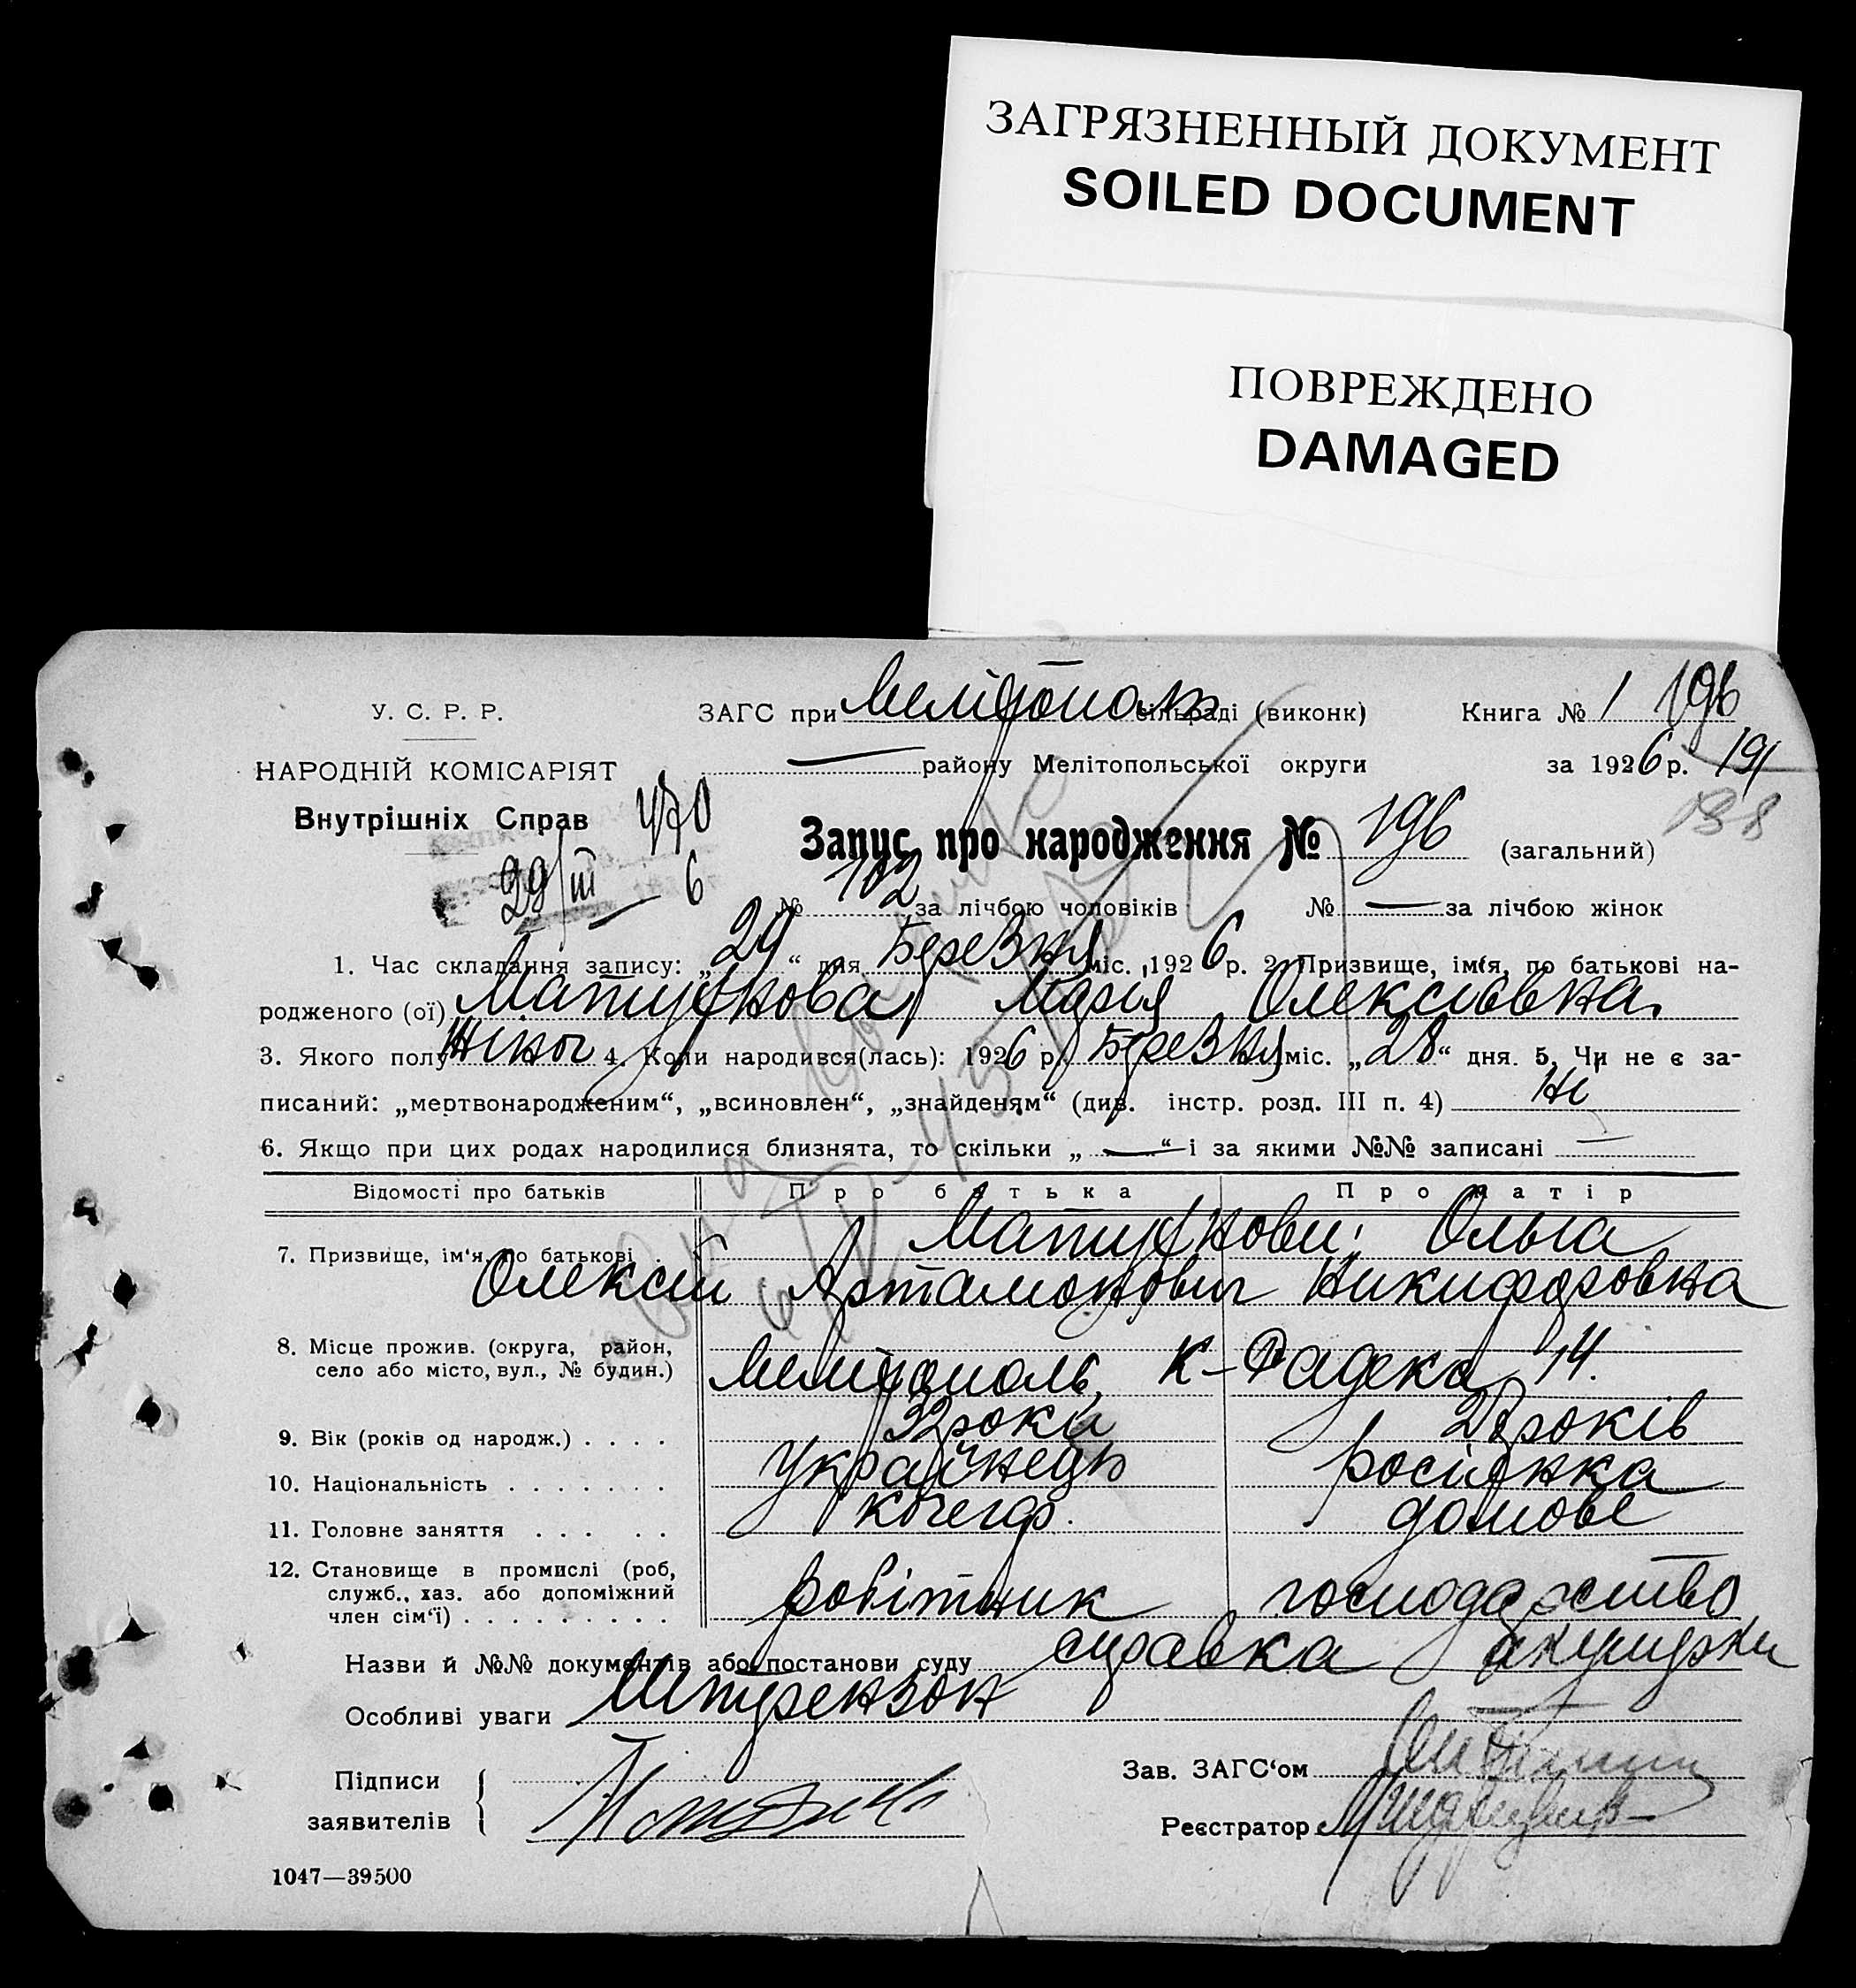 ЗАГРЯЗНЕННЫЙ ДОКУМЕНТ
SOILED DOCUMENT
ПОВРЕЖДЕНО
DAMAGED
У. С. Р. Р. ЗАГС при Мелітополь сільраді (виконк) Книга № 1 196
НАРОДНІЙ КОМІСАРІЯТ — району Мелітопольської округи за 1926 р. 191
Внутрішніх Справ 470 188
Запис про народження № 196 (загальний)
29/III 6
№ 102 за лічбою чоловіків № — за лічбою жінок
1. Час складання запису: „29“ дня Березня міс. 1926 р. 2. Призвище, ім‘я, по батькові на-
родженого (ої) Мапурнова Марія Олексіївна
3. Якого полу Жіноч 4. Коли народився(лась): 1926 р. Березня міс. „28“ дня. 5. Чи не є за-
писаний: „мертвонародженим“, „всиновлен“, „знайденям“ (див. інстр. розд. III п. 4) Ні
6. Якщо при цих родах народилися близнята, то скільки „—“ і за якими №№ записані —
Відомості про батьків Про батька Про матір
7. Призвище, ім‘я, по батькові Мапурнови; Ольга
Олексій Артамонович Никифоровна
8. Місце прожив. (округа, район,
село або місто, вул., № будин.) Мелітополь, К-Радека 14.
9. Вік (років од народж.) . . . . 32 роки 28 років
10. Національність . . . . . . . Українець росіянка
11. Головне заняття . . . . . кочегар. домове
12. Становище в промислі (роб,
служб., хаз. або допоміжний
член сім‘ї) . . . . . . . . . робітник господарство
Назви й №№ документів або постанови суду справка акушерки
Особливі уваги Штрензон
Підписи
заявителів
Зав. ЗАГС‘ом
Реєстратор
1047—39500